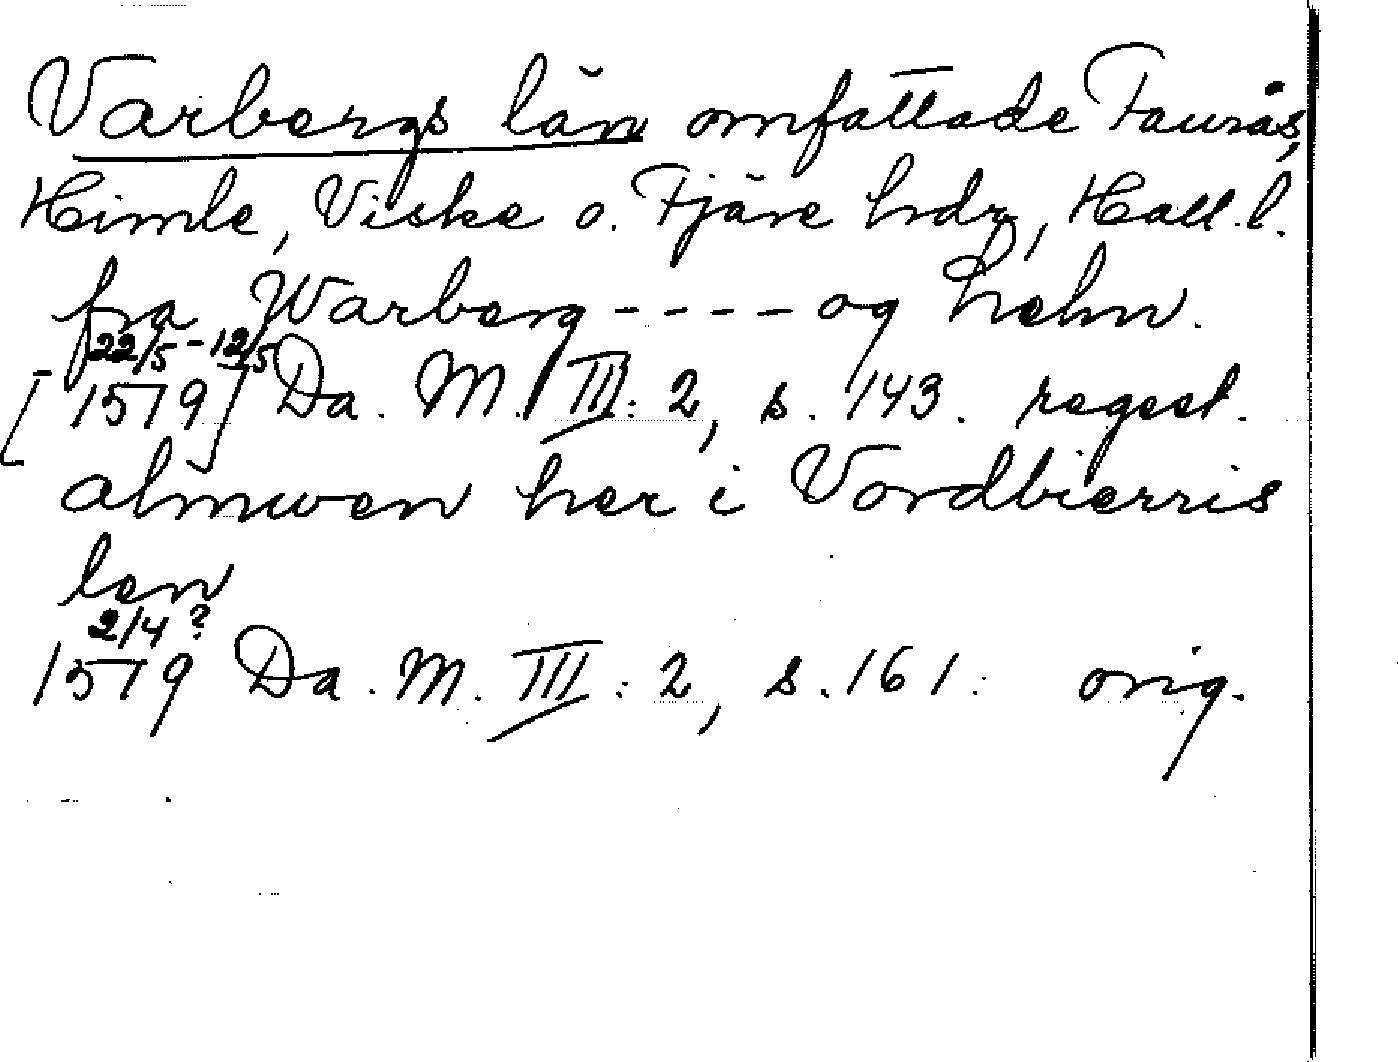 Varbergs län omfattade Faurås,
Himle, Viske o. Fjäre hrdr, Hall.l.
fra Warberg - - - - og Lehn.
22/5 - 12/5
[1579] Da. M. III: 2, s. 143. regest.
almwen her i Vordbierris
len
2/4 ?
1579 Da. M. III: 2, s. 161. orig.